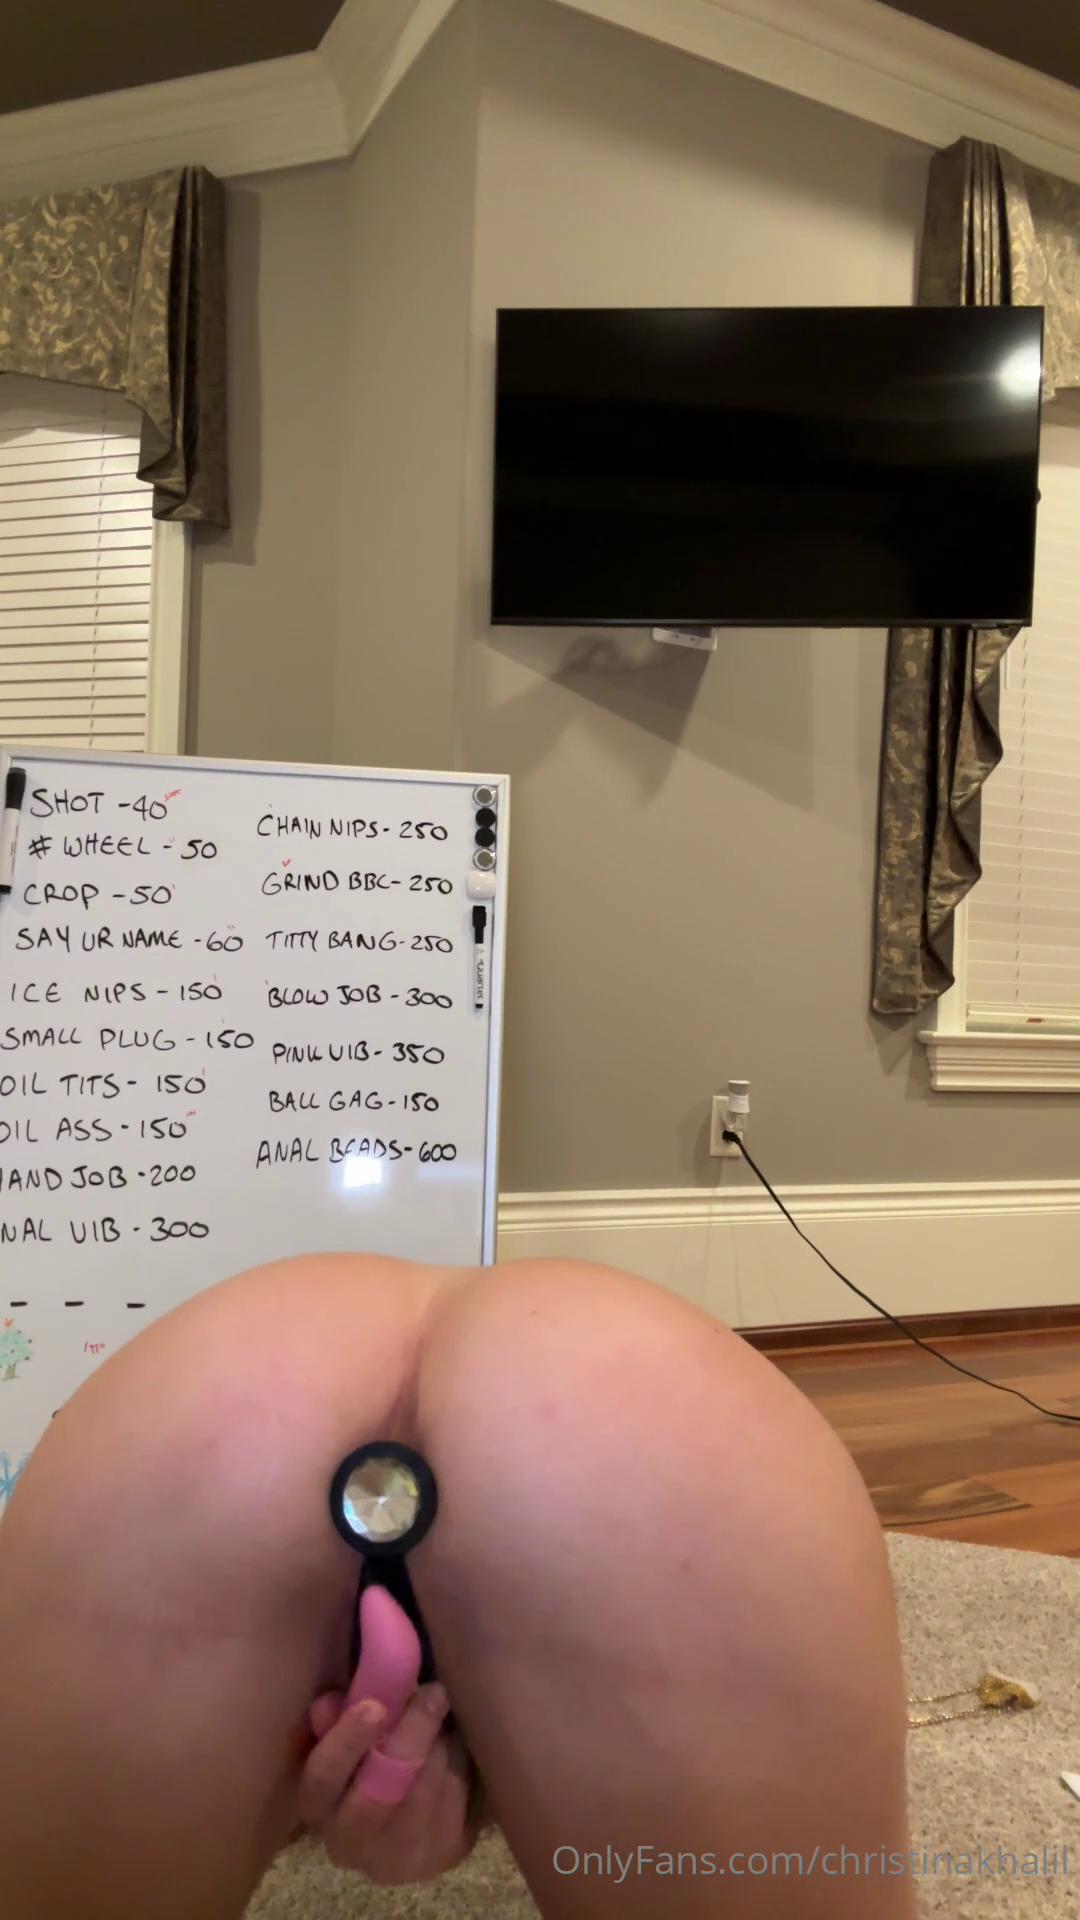 SHOT - 40
# WHEEL - 50
CROP - 50
SAY UR NAME - 60
ICE NIPS - 150
SMALL PLUG - 150
OIL TITS - 150
OIL ASS - 150
HAND JOB - 200
NAL VIB - 300
CHAIN NIPS - 250
GRIND BBC - 250
TITTY BANG - 250
BLOW JOB - 300
PINK VIB - 350
BALL GAG - 150
ANAL BEADS - 600
OnlyFans.com/christinakhalil